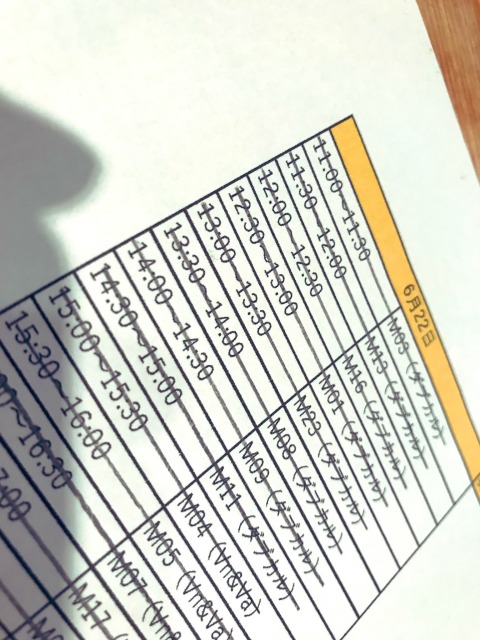 6月22日
11:00～11:30 M03 (ダブカル)
11:30～12:00 M13 (ダブカル)
12:00～12:30 M16 (ダブカル)
12:30～13:00 M01 (ダブカル)
13:00～13:30 M23 (ダブカル)
13:30～14:00 M08 (ダブカル)
14:00～14:30 M09 (ダブカル)
14:30～15:00 M11 (ダブカル)
15:00～15:30 M04 (Vn&Va)
15:30～16:00 M05 (Vn&Va)
00～16:30 M07 (Vn&
7:00 M17 (